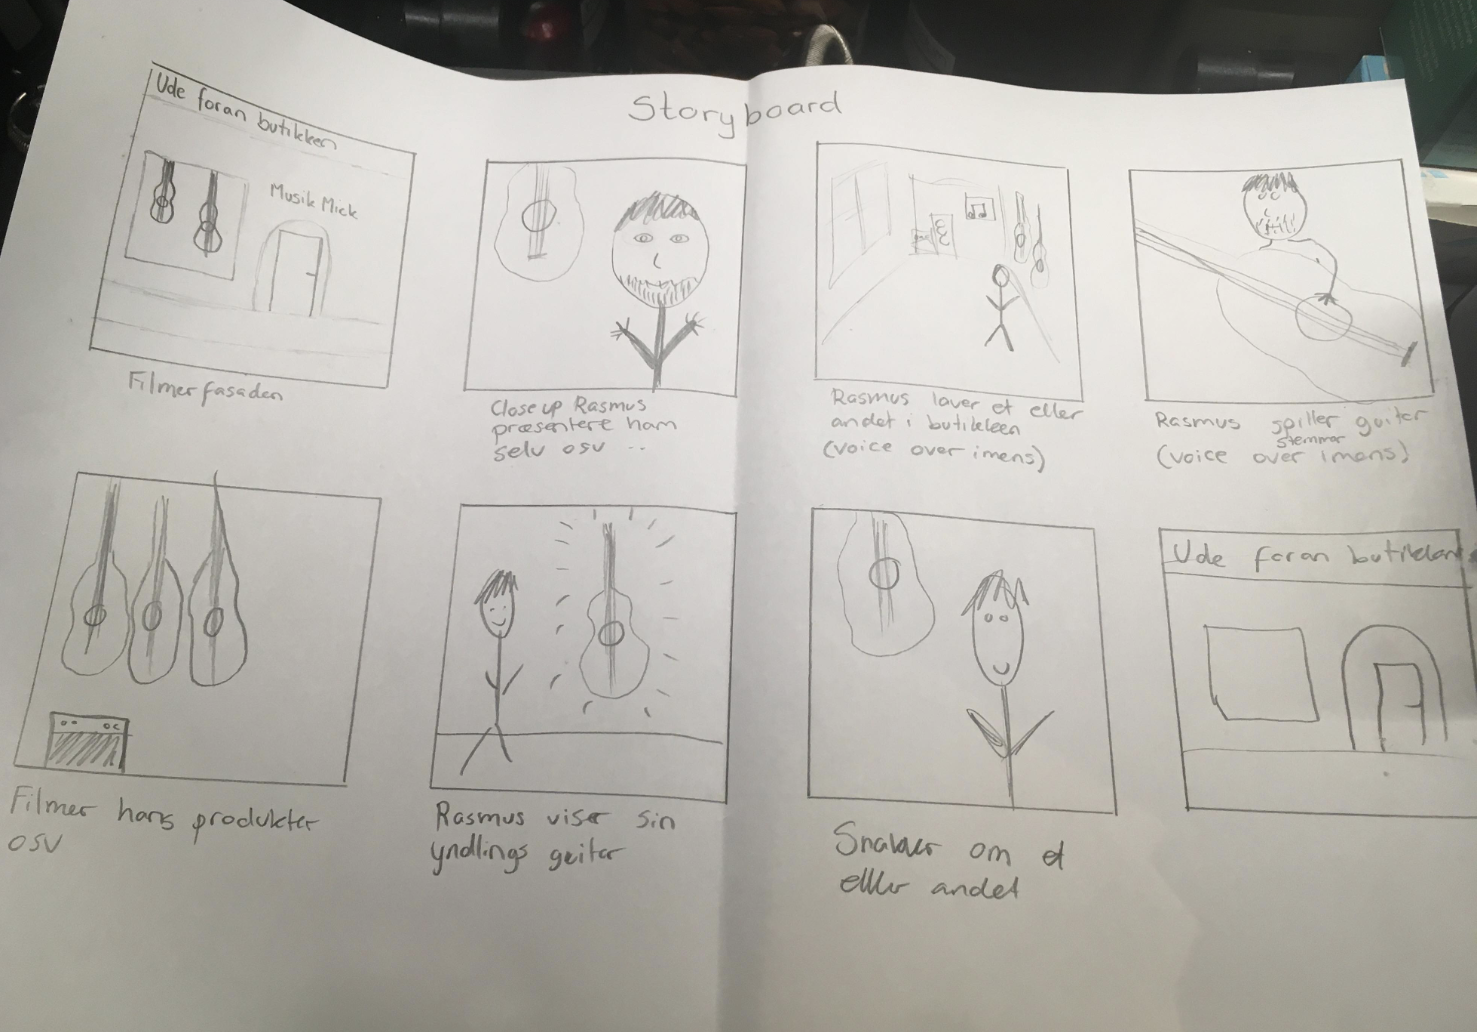 Storyboard
Ude foran butikken
Musik Mick
Filmer fasaden
Close up Rasmus
præsentere ham
selv osv ...
Rasmus laver et eller
andet i butikken
(voice over imens)
Rasmus spiller guitar
stemmer
(voice over imens)
Filmer hans produkter
osv
Rasmus viser sin
yndlings guitar
Snakker om et
eller andet
Ude foran butikken